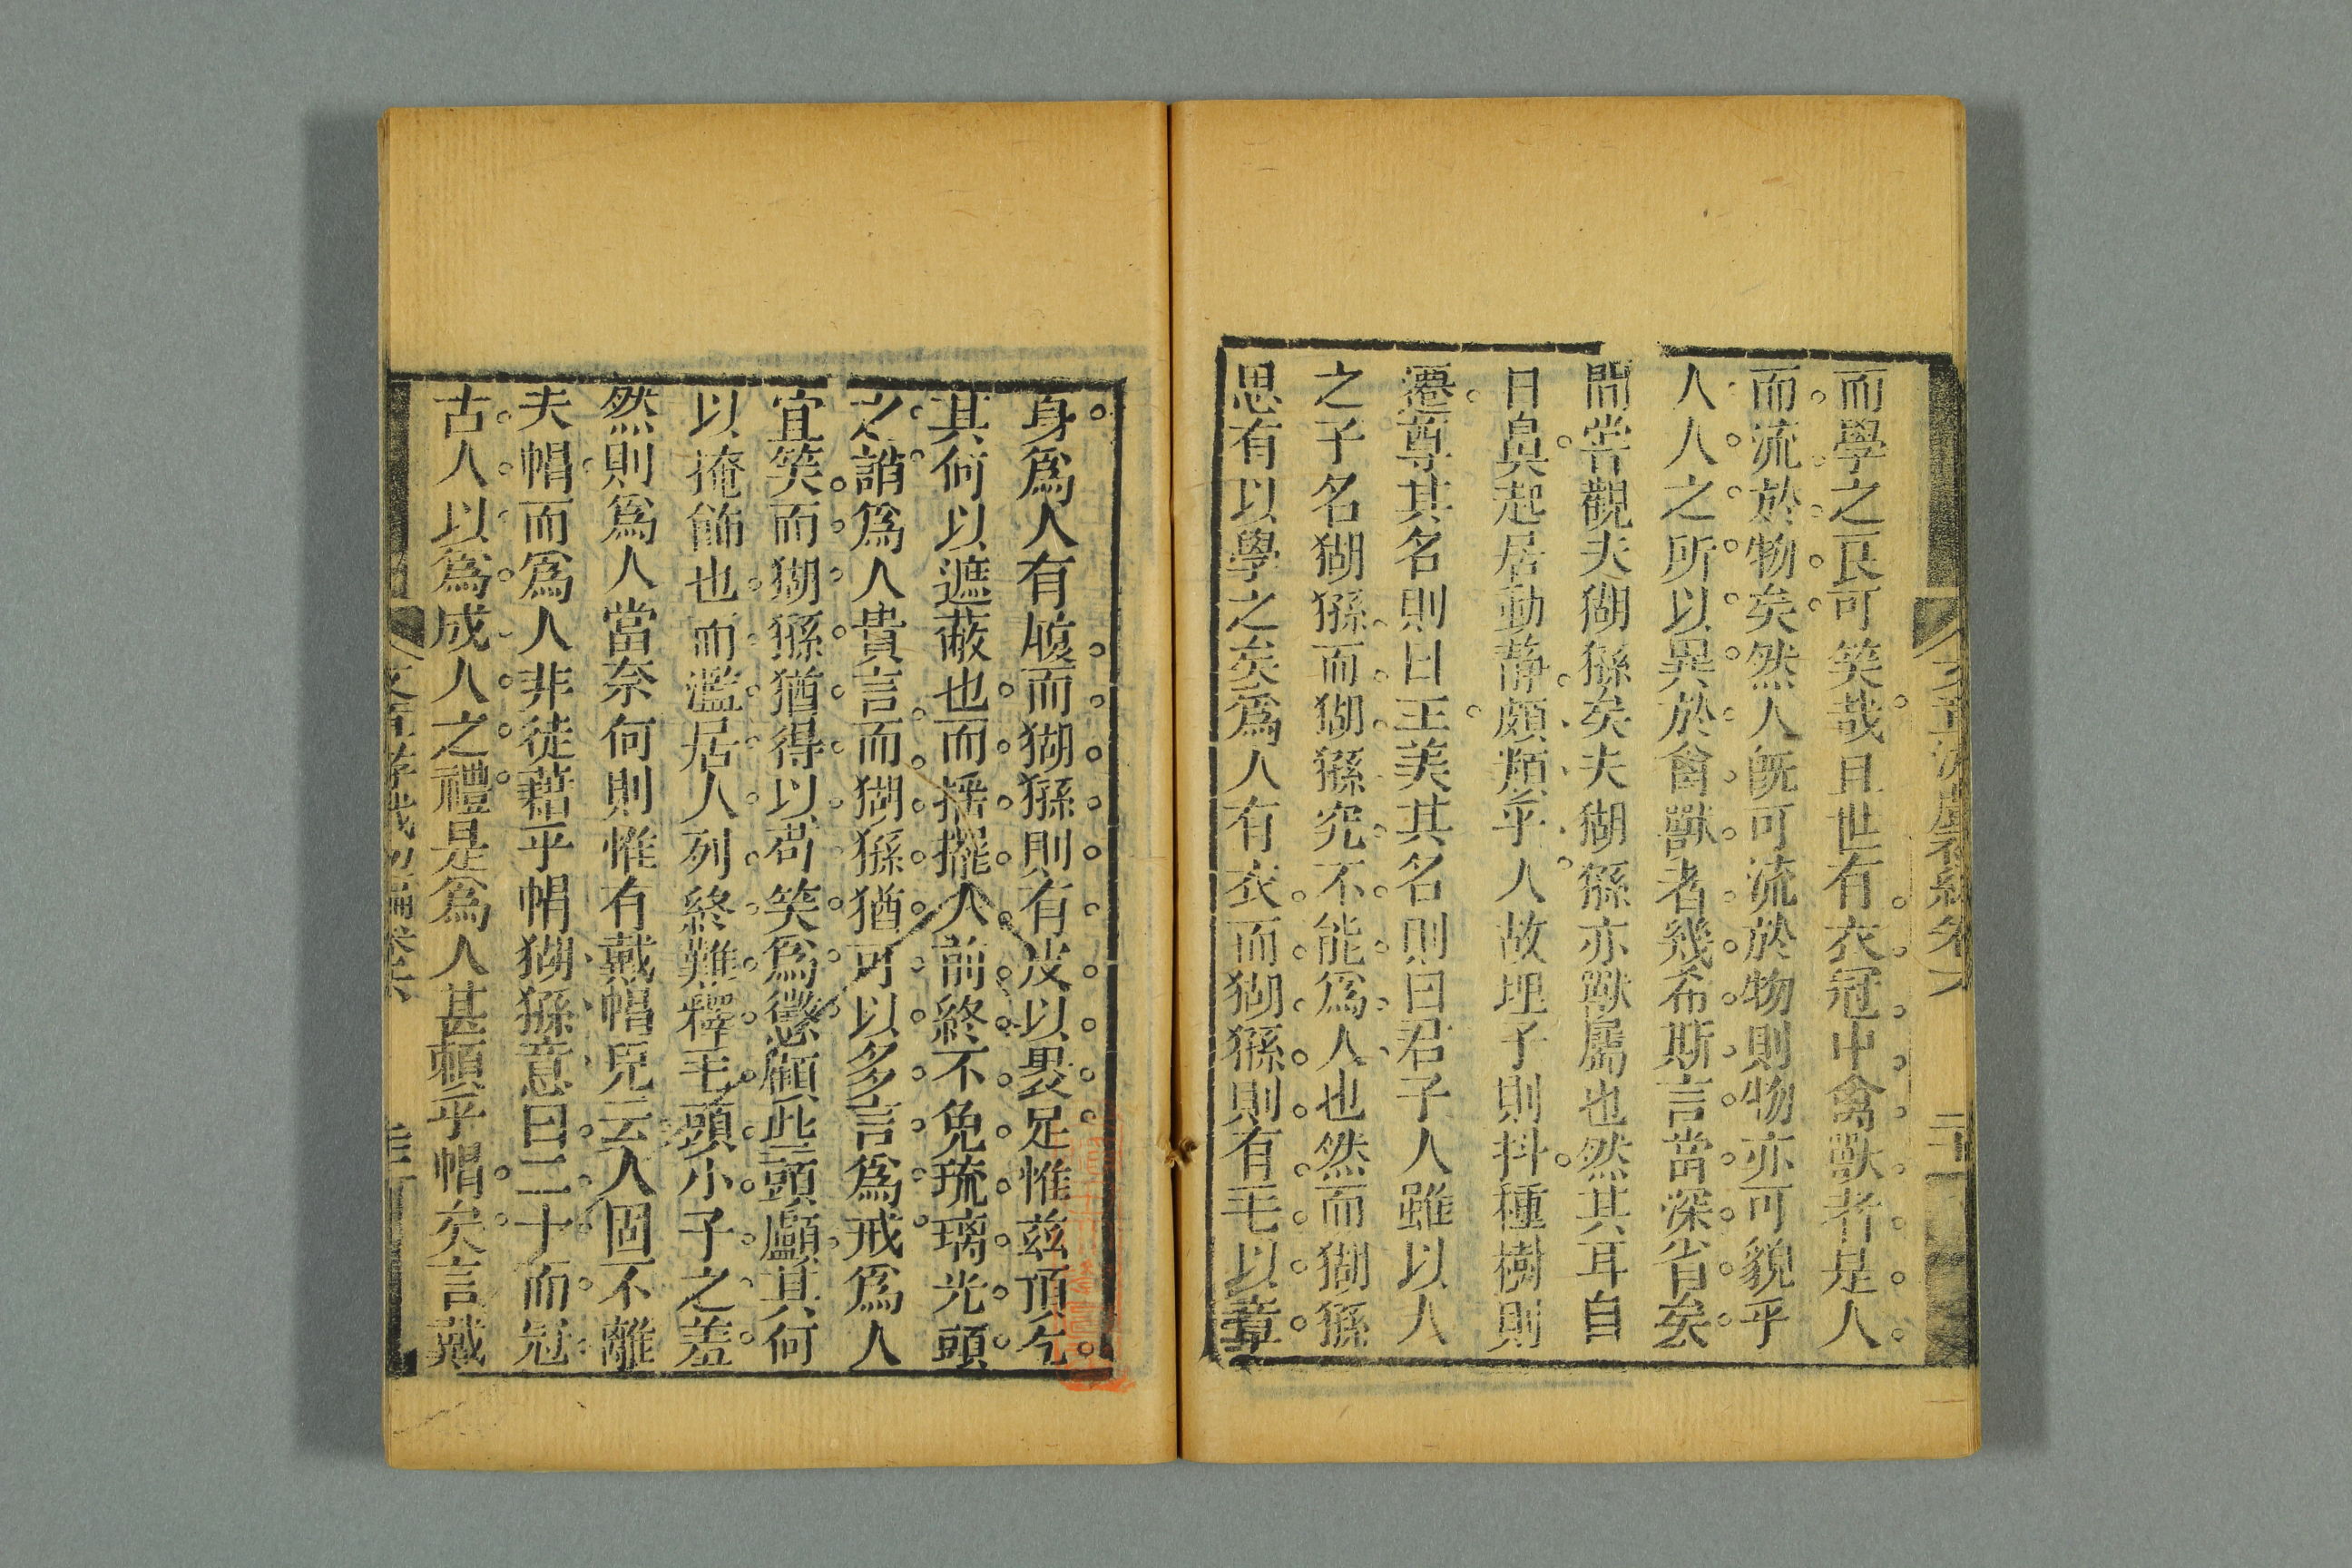 而學之良可笑哉且世有衣冠中禽獸者是人
而流於物矣然人既可流於物則物亦可貌乎
人人之所以異於禽獸者幾希斯言當深省矣
間嘗觀夫猢猻矣夫猢猻亦獸屬也然其耳自
目鼻起居動静頗類乎人故埋子則抖種樹則
遷尊其名則曰王美其名則曰君子人雖以人
之子名猢猻而猢猻究不能爲人也然而猢猻
思有以學之矣爲人有衣而猢猻則有毛以章
身爲人有履而猢猻則有皮以裹足惟茲頂乞
其何以遮蔽也而搖擺人前終不免琉璃光頭
之誚爲人貴言而猢猻猶可以多言爲戒爲人
宜笑而猢猻猶得以苟笑爲懲顧此頭顱其何
以掩飾也而濫居人列終難釋毛頭小子之羞
然則爲人當奈何則惟有戴帽兒云人固不離
夫帽而爲人非徒藉乎帽猢猻意曰二十而冠
古人以爲成人之禮是爲人甚賴乎帽矣言戴